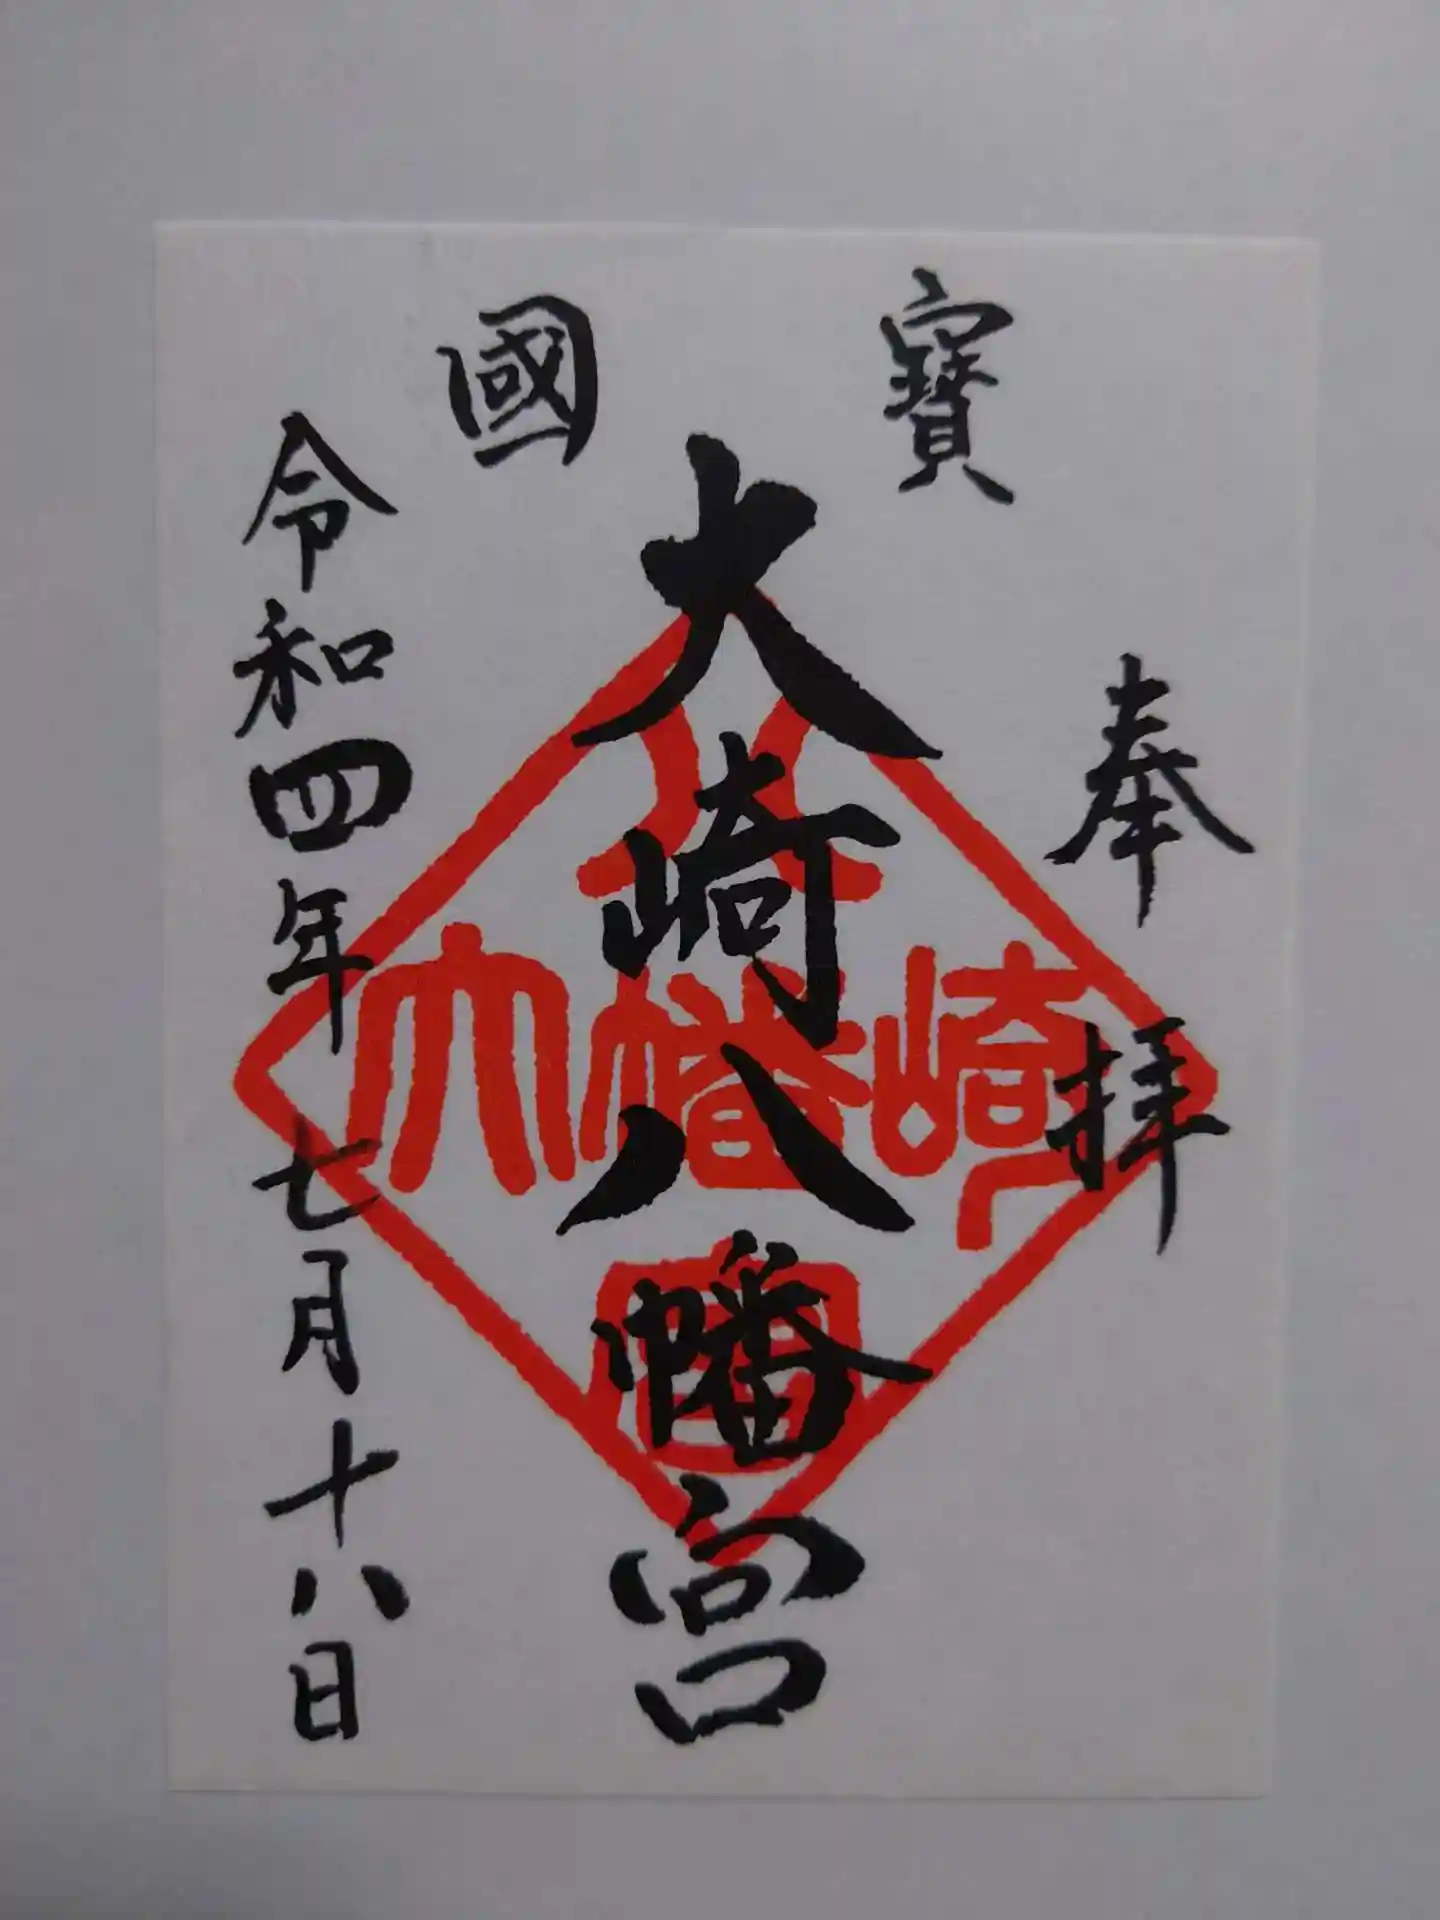 奉拝
國寶
大崎八幡宮
令和四年七月十八日
八
大幡崎
宮